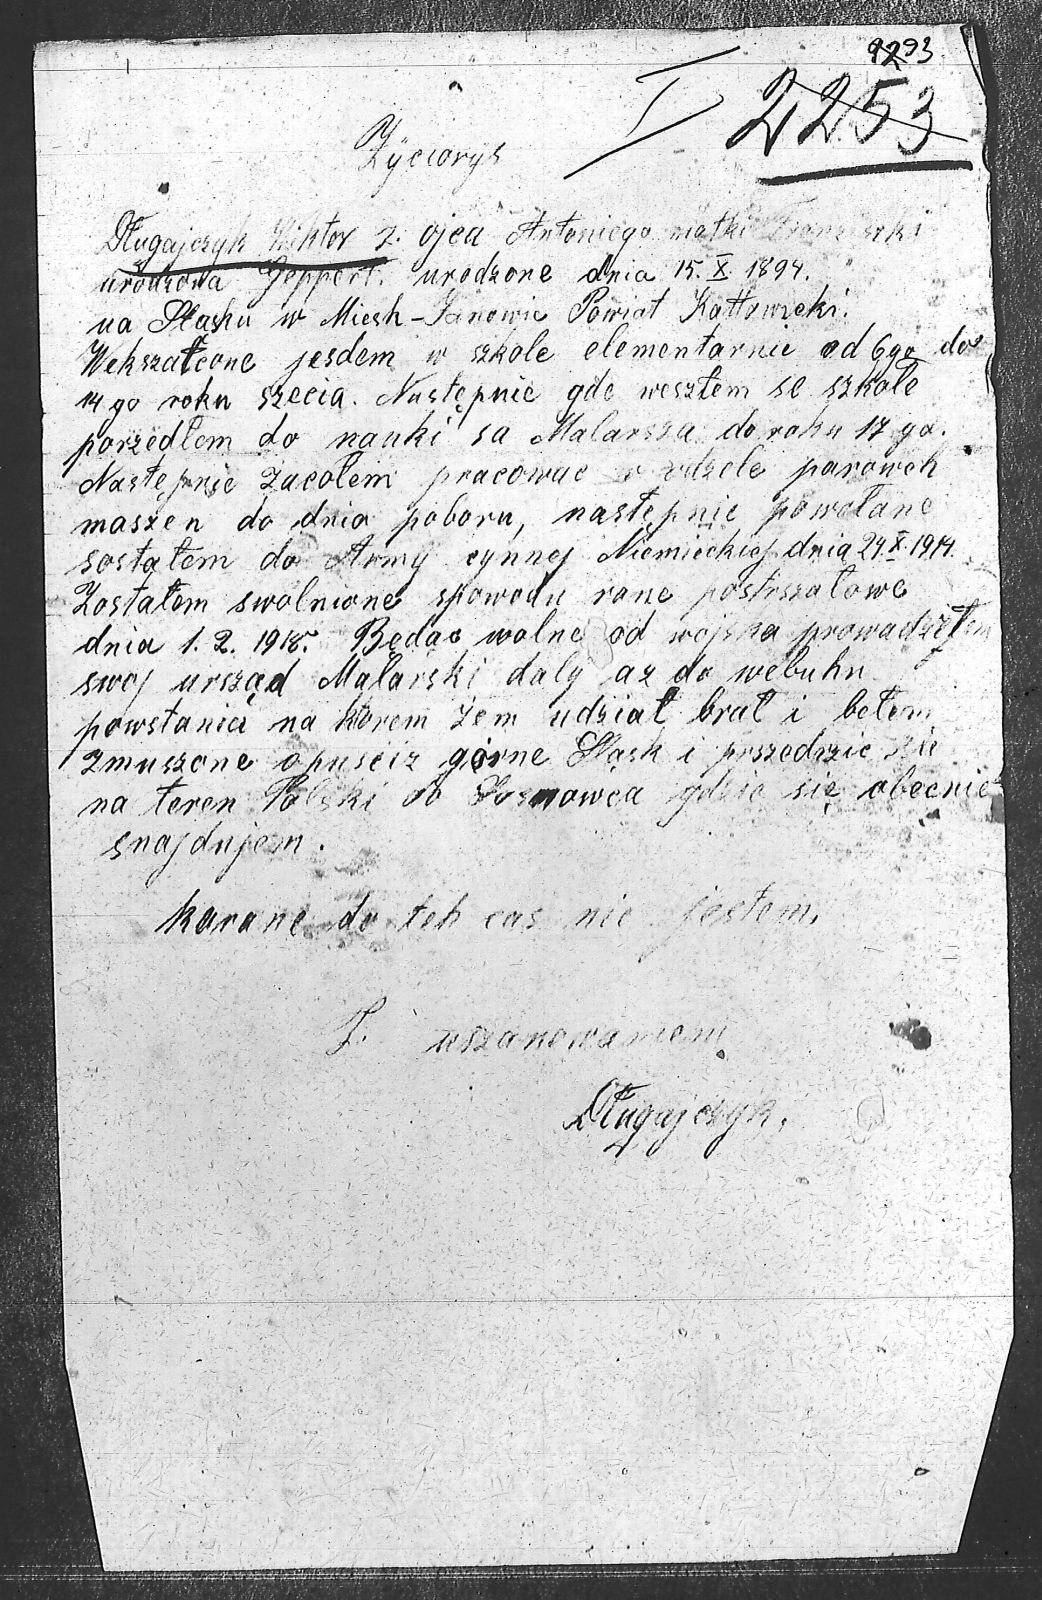 9293
I 2253
Życiorys
Długajczyk Wiktor z. ojca Antoniego matki Franciszki
urodzona Geppert. urodzone dnia 15. X. 1894.
na Sląsku w Miesh-Janowie Powiat Kattowicki.
Wekszałcone jesdem w szkole elementarnie od 6go do
14 go roku szecia. Następnie gde wesztem se szkołe
porzedłem do nauki sa Malarsza do roku 17 go.
Następnie zacołem pracowac w rdzele parowch
maszen do dnia poboru, następnie powołane
sostałem do Army cynnej Niemieckiej dnia 24. X. 1914.
Zostałem swolnione spowodu rane postrszałowe
dnia 1. 2. 1918. Będąc wolne od wojska prowadzełem
swoj ursząd Malarski daly az do webuhu
powstania na ktorem zem udział brał i bełem
zmuszone opusciz gorne Sląsk i prszedrzic sie
na teren Polski do Sosnowca gdzie się obecnie
snajdujem.
karane do teh cas nie jestem.
Z. uszanowaniem
Długajczyk.